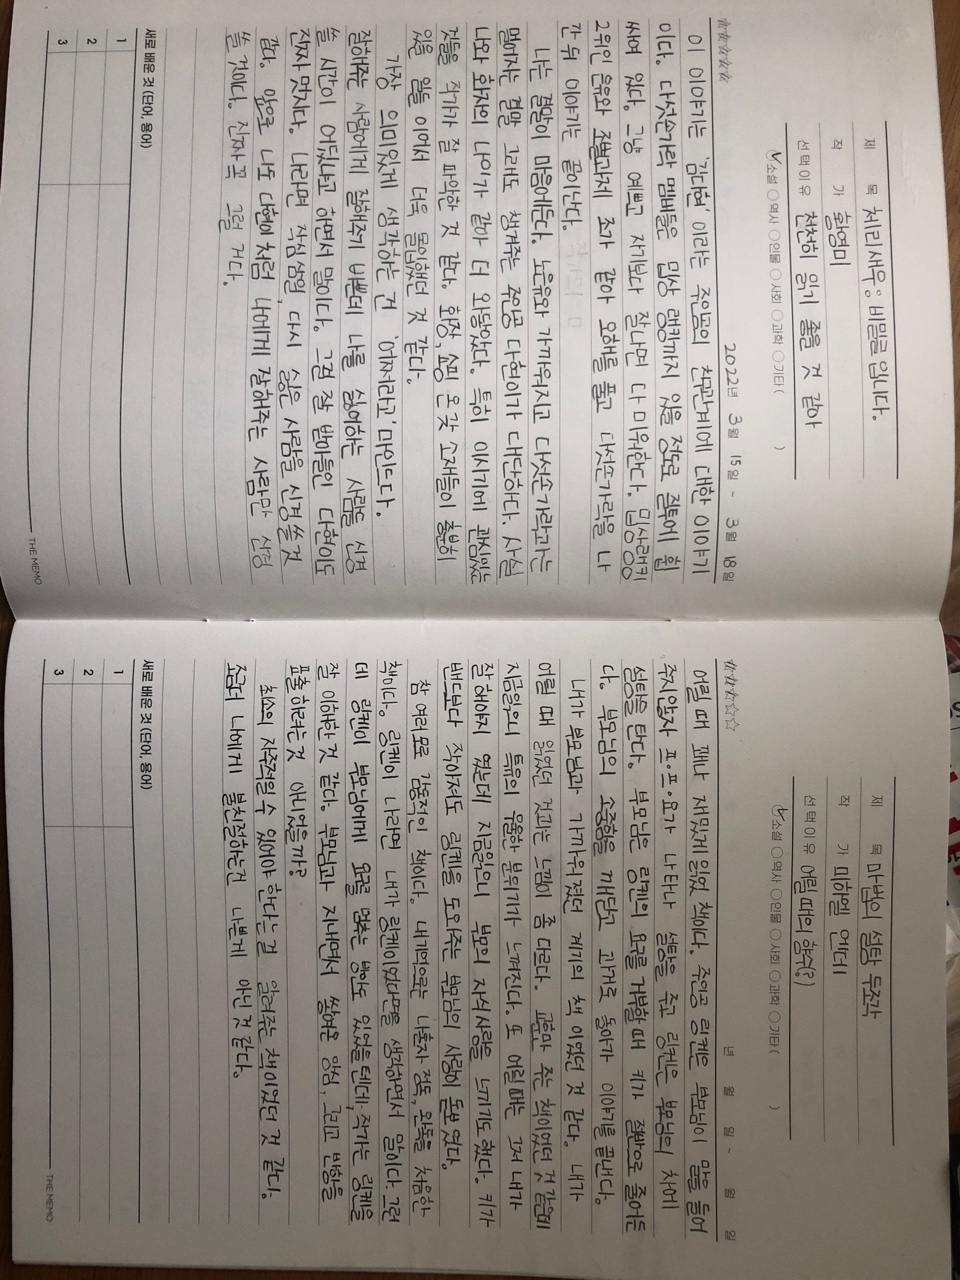 제 목 체리새우: 비밀글 입니다.
작 가 황영미
선택이유 천천히 읽기 좋을 것 같아
소설 역사 인물 사회 과학 기타 ( )
2022년 3월 15일 ~ 3월 18일
이 이야기는 '김다현' 이라는 주인공의 친구관계에 대한 이야기
이다. 다섯손가락 멤버들은 밉상 랭킹까지 있을 정도로 질투에 휩
싸여 있다. 그냥 예쁘고 자기보다 잘나면 다 미워한다. 밉상랭킹
2위인 은유와 조별과제 조가 같아 오해를 풀고 다섯손가락을 나
간 뒤 이야기는 끝이난다.
나는 결말이 마음에든다. 노은유와 가까워지고 다섯손가락과는
멀어지는 결말 그래도 챙겨주는 주인공 다현이가 대단하다. 사실
나와 화자의 나이가 같아 더 와닿았다. 특히 이시기에 관심있는
것들을 작가가 잘 파악한 것 같다. 화장, 쇼핑 온갖 소재들이 충분히
있을 일들 이어서 더욱 몰입했던 것 같다.
가장 의미있게 생각하는 건 '어쩌라고' 마인드다.
잘해주는 사람에게 잘해주기 바쁜데 나를 싫어하는 사람들 신경
쓸 시간이 어딨냐고 하면서 말이다. 그걸 잘 받아들인 다현이도
진짜 멋지다. 나라면 작심삼일, 다시 싫은 사람을 신경쓸것
같다. 앞으로 나도 다현이처럼 나에게 잘해주는 사람만 신경
쓸 것이다. 진짜 꼭 그럴 거다.
새로 배운 것 (단어, 용어)
1
2
3
THE MEMO
제 목 마법의 설탕 두조각
작 가 미하엘 엔데
선택이유 어릴때의 향수(?)
소설 역사 인물 사회 과학 기타 ( )
년 월 일 ~ 월 일
어릴 때 꽤나 재밌게 읽었 책이다. 주인공 링켄은 부모님이 말을 들어
주지않자 프·프·요가 나타나 설탕을 주고 링켄은 부모님의 차에
설탕을 탄다. 부모님은 링켄의 요구를 거부할때 키가 절반으로 줄어든
다. 부모님의 소중함을 깨닫고 과거로 돌아가 이야기를 끝낸다.
내가 부모님과 가까워졌던 계기의 책 이었던 것 같다. 내가
어릴 때 읽었던 것과는 느낌이 좀 다르다. 교훈만 주는 책이었던 것 같은데
지금읽으니 특유의 우울한 분위기가 느껴진다. 또 어릴때는 그저 내가
잘 해야지 였는데 지금읽으니 부모의 자식사랑을 느끼기도 했다. 키가
밴드보다 작아져도 링켄을 도와주는 부모님의 사랑이 돋보였다.
참 여러모로 감동적인 책이다. 내기억으로는 나혼자 정독, 완독을 처음한
책이다. 링켄이 나라면 내가 링켄이었다면을 생각하면서 말이다. 그런
데 링켄이 부모님에게 요구를 멈추는 방안도 있었을텐데, 작가는 링켄을
잘 이해한 것 같다. 부모님과 지내면서 쌓여온 앙심, 그리고 반항을
표출하려는것 아니었을까?
최소의 자주적일 수 있어야 한다는걸 알려주는 책이었던 것 같다.
조금더 나에게 불친절하는건 나쁜게 아닌것 같다.
새로 배운 것 (단어, 용어)
1
2
3
THE MEMO